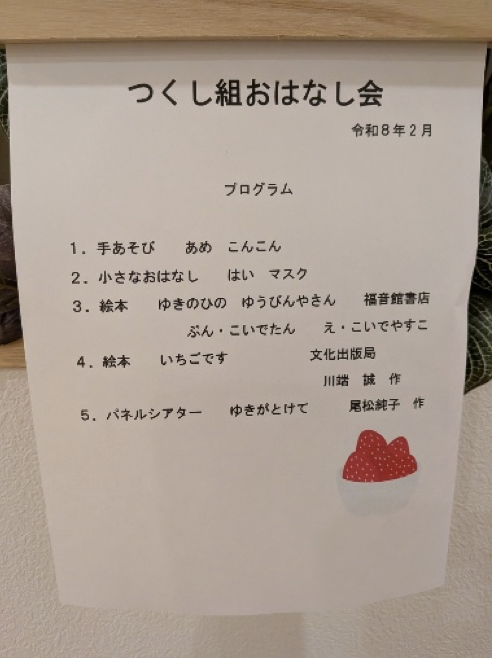 つくし組おはなし会
令和8年2月
プログラム
1．手あそび　あめ　こんこん
2．小さなおはなし　はい　マスク
3．絵本　ゆきのひの　ゆうびんやさん　福音館書店
ぶん・こいでたん　え・こいでやすこ
4．絵本　いちごです　文化出版局
川端　誠　作
5．パネルシアター　ゆきがとけて　尾松純子　作